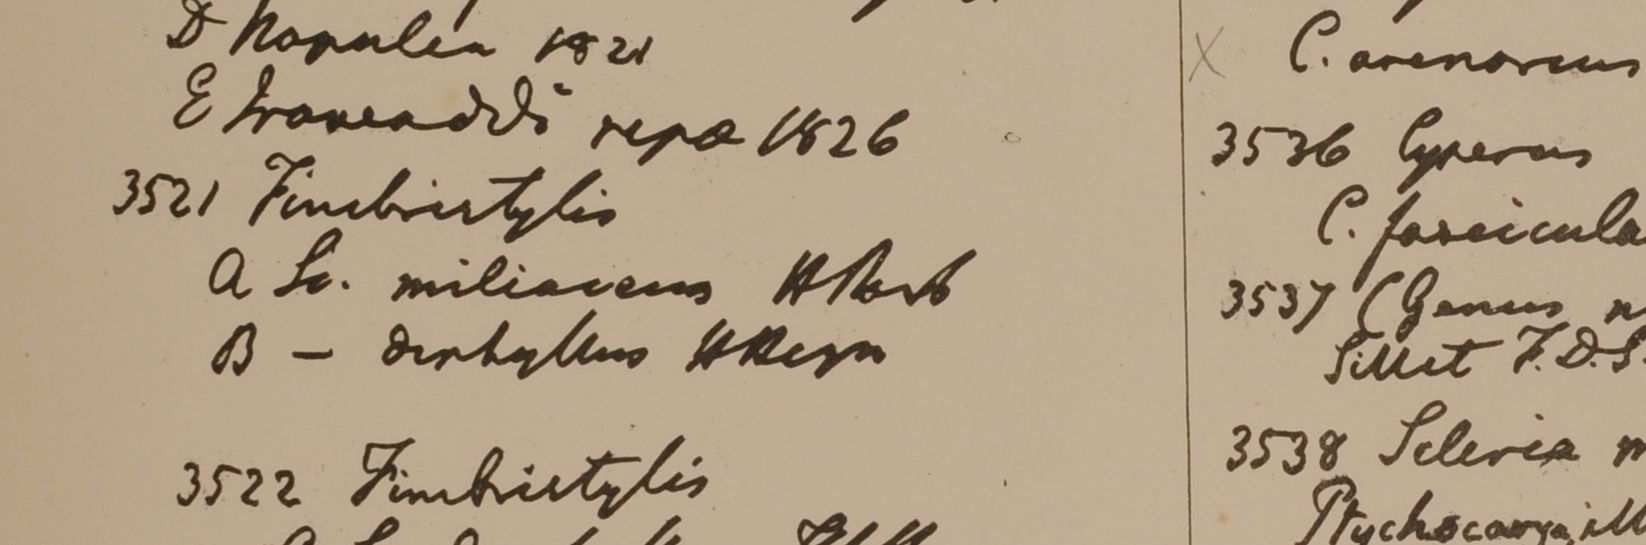 D Napalea 1821
E Irawaddi ripa 1826
3521 Fimbristylis
A Sc. miliaceus HRoxb
B — diphyllus HHeyn
3522 Fimbristylis
X C. arenarius
3536 Cyperus
C. fascicula
3537 (Genus n
Sillet F.D.S.
3538 Scleria m